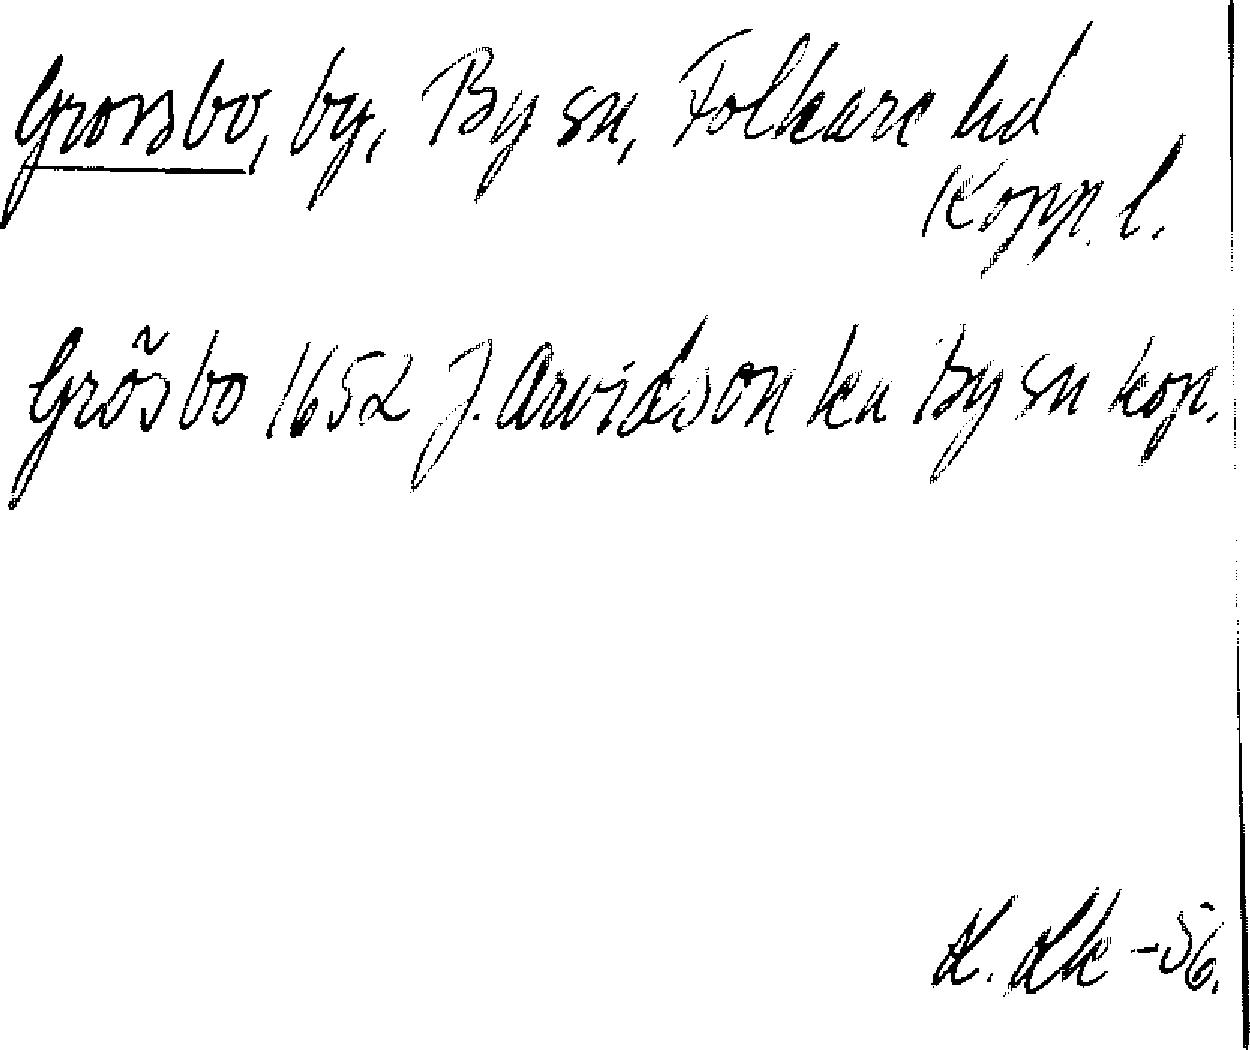 Gronsbo, by, By sn, Folkare hd
Kopp. l.
Grõsbo 1652 J. Arvidson ka By sn kop.
-56.